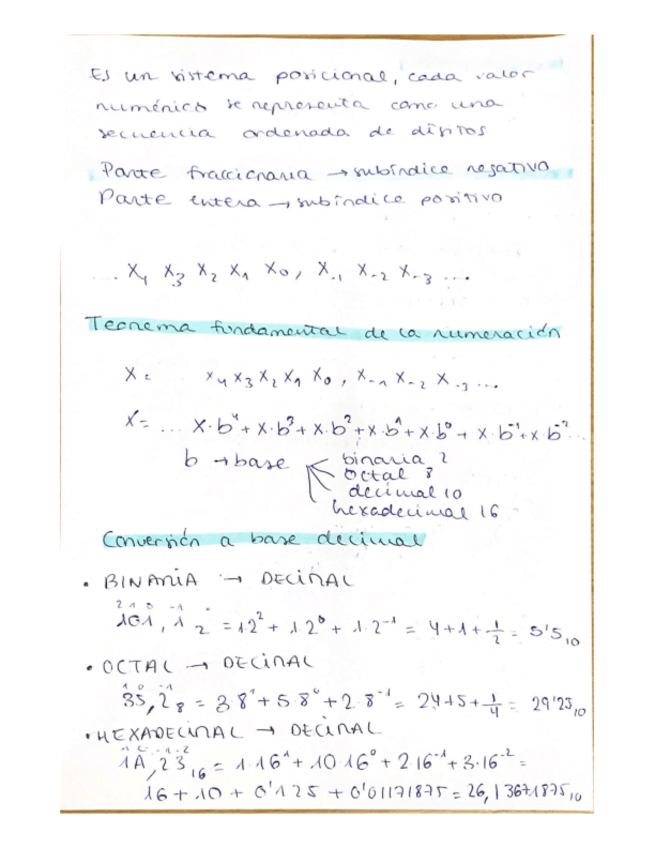 Es un sistema posicional, cada valor
numérico se representa como una
secuencia ordenada de dígitos
Parte fraccionaria → subíndice negativo
Parte entera → subíndice positivo
... X₄ X₃ X₂ X₁ X₀, X₋₁ X₋₂ X₋₃ ...
Teorema fundamental de la numeración
X = ... X₄ X₃ X₂ X₁ X₀, X₋₁ X₋₂ X₋₃ ...
X = ... X·b⁴ + X·b³ + X·b² + X·b¹ + X·b⁰ + X·b⁻¹ + X·b⁻² ...
b → base
binaria 2
octal 8
decimal 10
hexadecimal 16
Conversión a base decimal
• BINARIA → DECIMAL
2 1 0 -1
101,1₂ = 1·2² + 1·2⁰ + 1·2⁻¹ = 4+1+1/2 = 5'5₁₀
• OCTAL → DECIMAL
1 0 -1
35,2₈ = 3·8¹ + 5·8⁰ + 2·8⁻¹ = 24+5+1/4 = 29'25₁₀
• HEXADECIMAL → DECIMAL
1 0 -1 -2
1A,23₁₆ = 1·16¹ + 10·16⁰ + 2·16⁻¹ + 3·16⁻² =
16 + 10 + 0'125 + 0'01171875 = 26,13671875₁₀